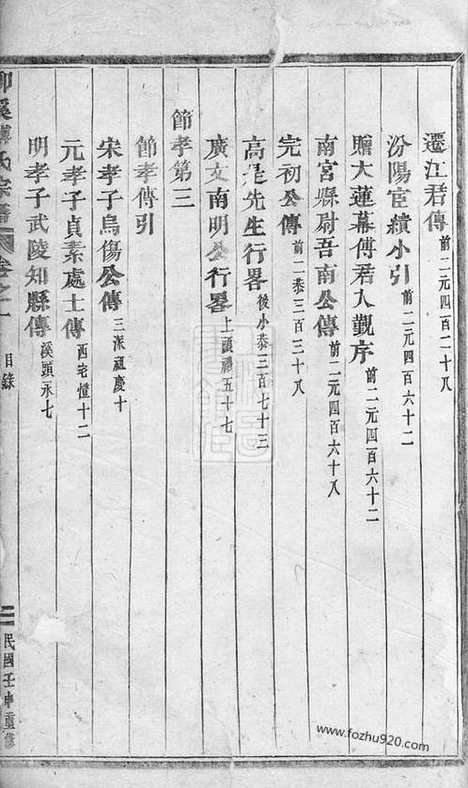 遷江君傳 前二元四百二十八
汾陽宦績小引 前二元四百六十二
贈大蓮幕傅君入覲序 前二元四百六十二
南宮縣尉吾南公傳 前二元四百六十八
完初公傳 前二恭三百三十八
高是先生行畧 後小恭三百七十三
廣文南明公行畧 上頭禮五十七
節孝第三
節孝傳引
宋孝子烏傷公傳 三派祖慶十
元孝子貞素處士傳 西宅懂十二
明孝子武陵知縣傳 溪頭永七
柳溪傅氏宗譜 卷之一 目錄 二 民國壬申重修
www.fozhu920.com